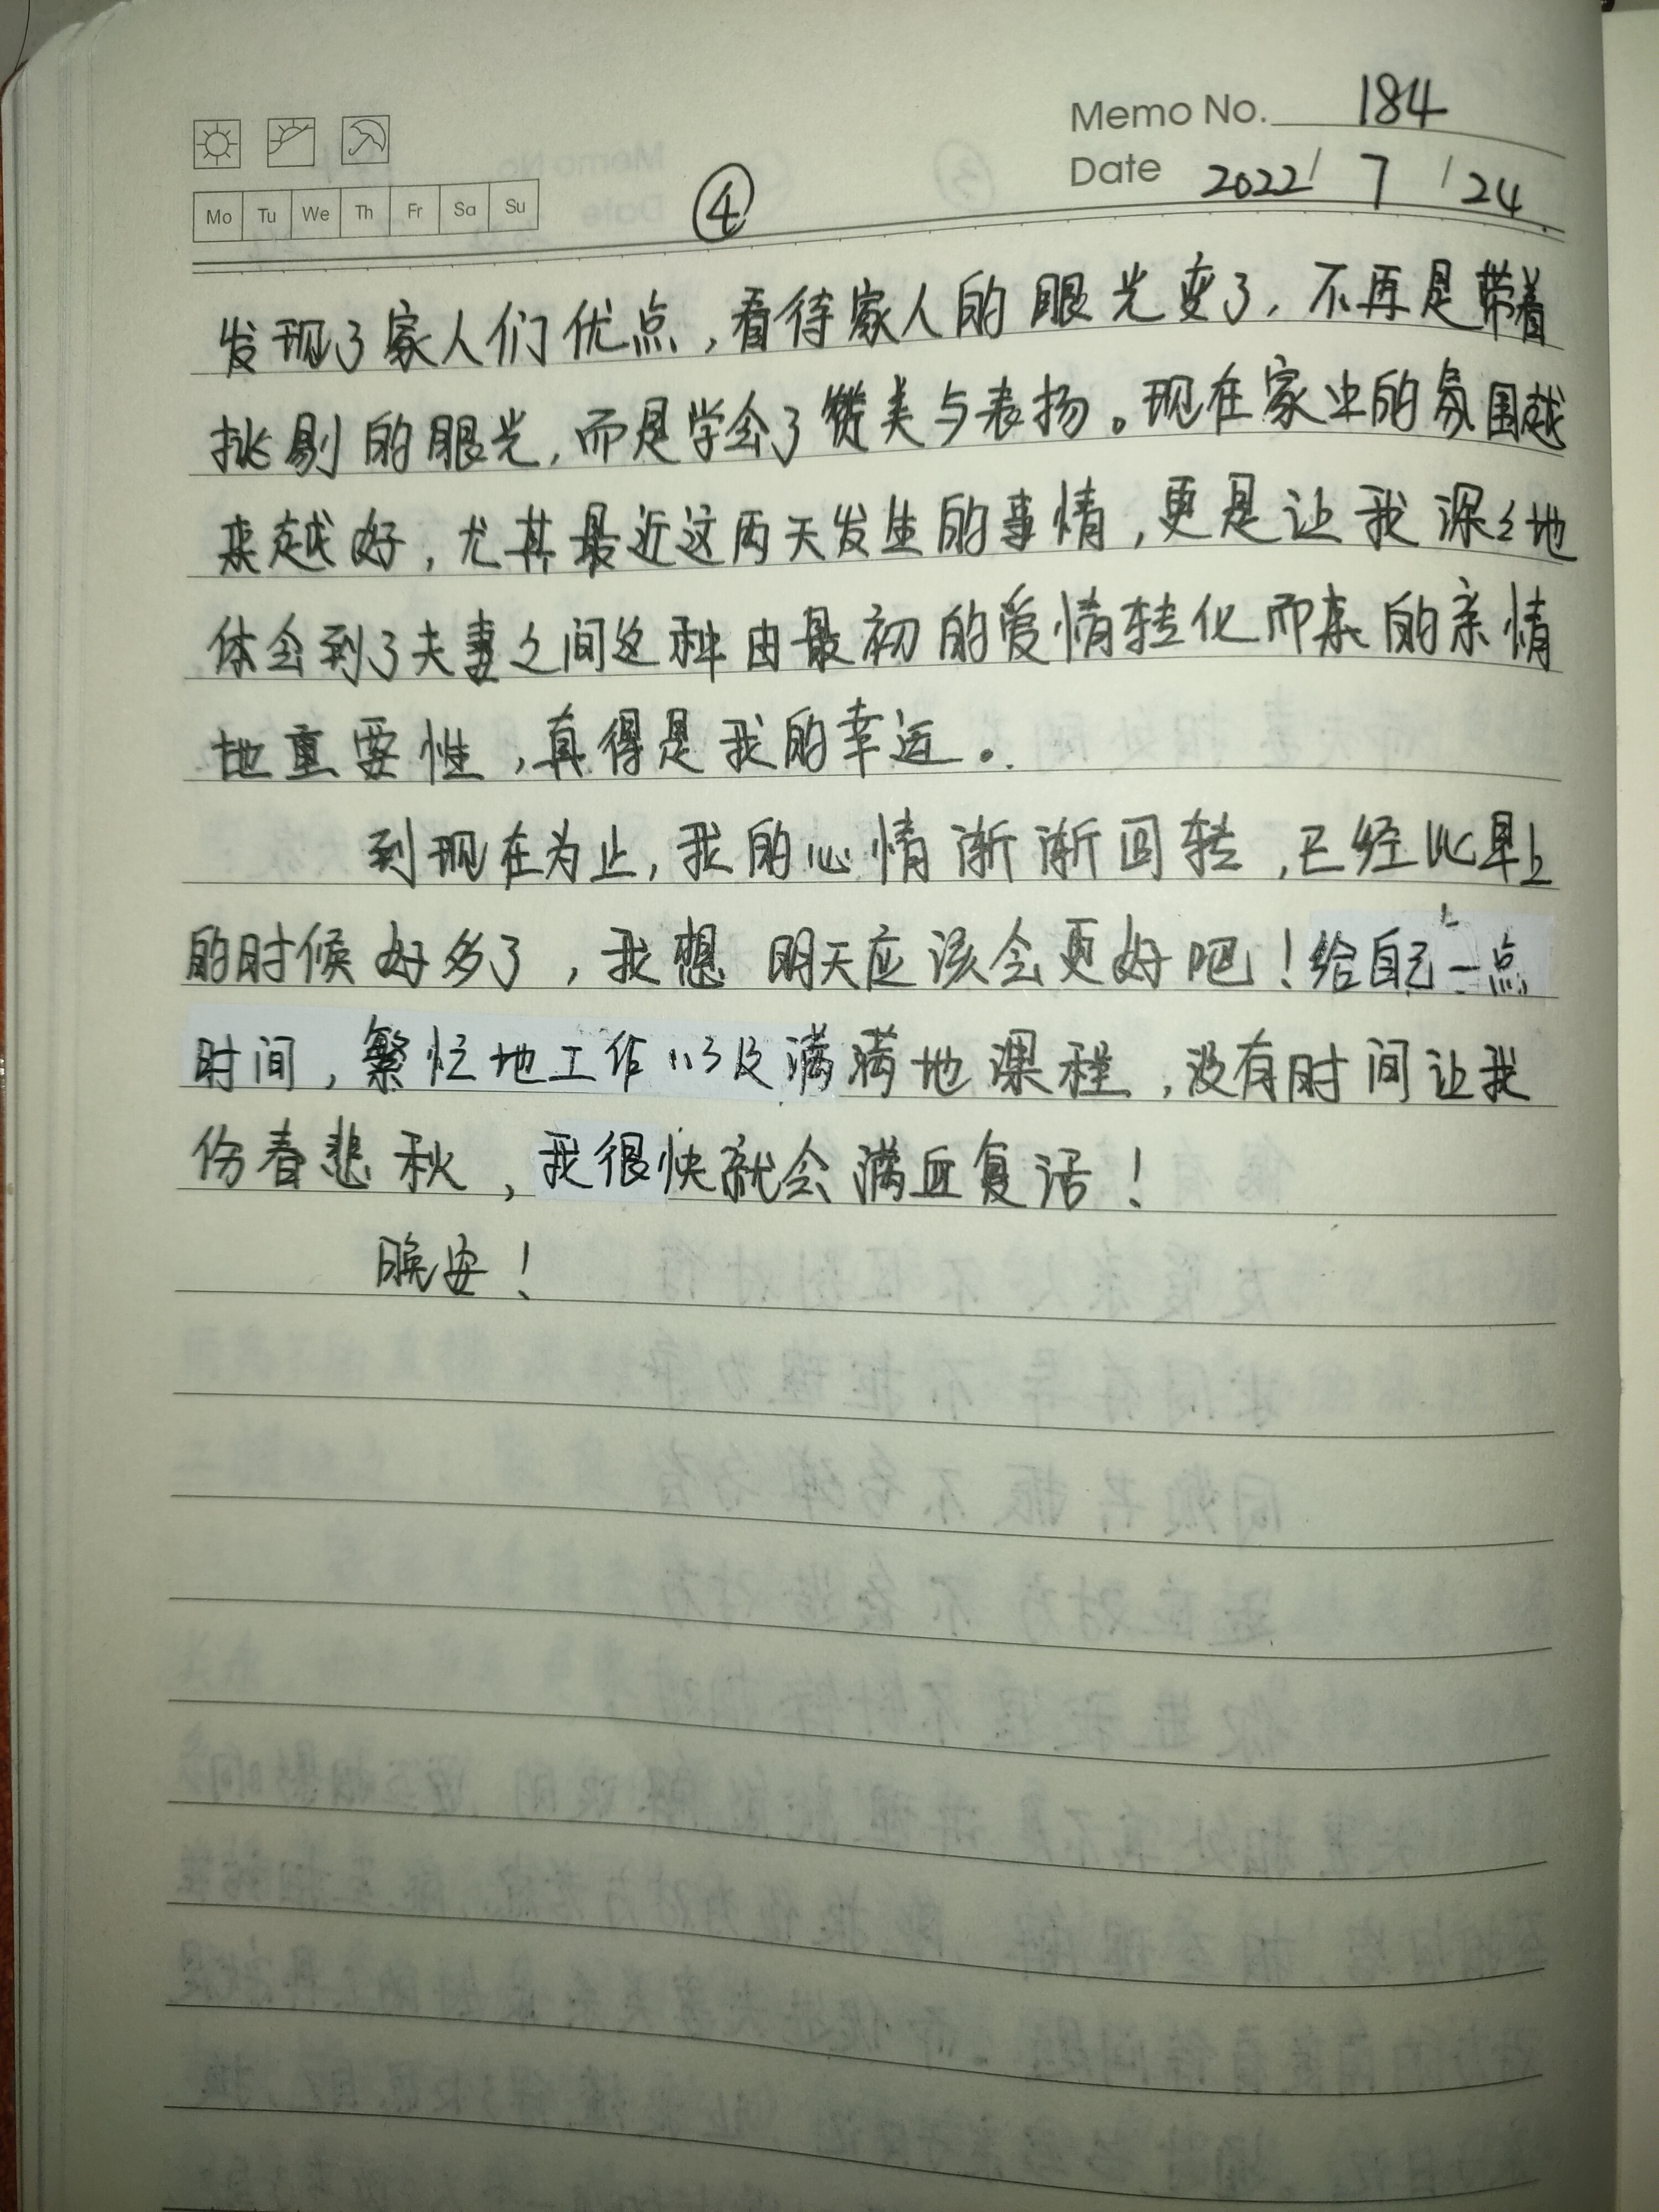 Memo No. 184
Date 2022 / 7 / 24
Mo Tu We Th Fr Sa Su
④
发现了家人们优点,看待家人的眼光变了,不再是带着
挑剔的眼光,而是学会了赞美与表扬。现在家中的氛围越
来越好,尤其最近这两天发生的事情,更是让我深々地
体会到了夫妻之间这种由最初的爱情转化而来的亲情
地重要性,真得是我的幸运。
到现在为止,我的心情渐渐回转,已经比早上
的时候好多了,我想明天应该会更好吧!给自己一点
时间,繁忙地工作以及满满地课程,没有时间让我
伤春悲秋,我很快就会满血复活!
晚安!